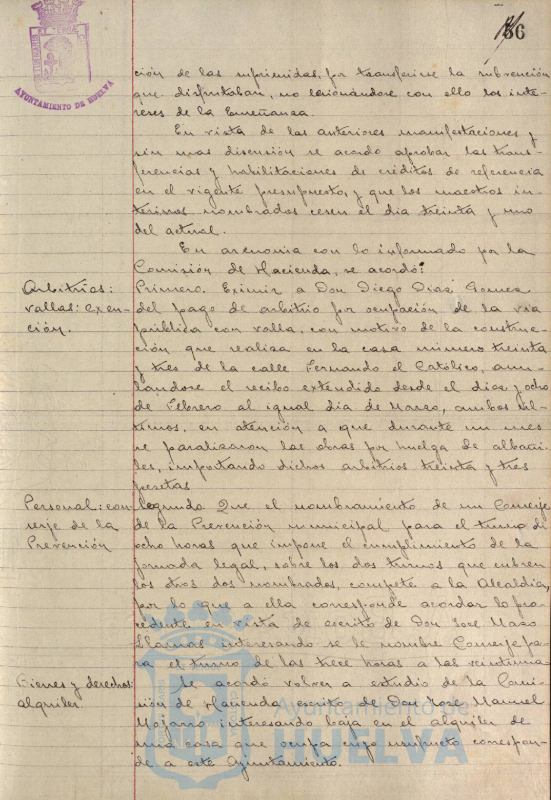 86
AYUNTAMIENTO DE HUELVA
ción de las suprimidas, por transferirse la subvención
que disfrutaban, no lesionándose con ello los inte-
reses de la Enseñanza.
En vista de las anteriores manifestaciones y
sin mas discusión se acordo aprobar las trans-
ferencias y habilitaciones de créditos de referencia
en el vigente presupuesto, y que los maestros in-
terinos nombrados cesen el dia treinta y uno
del actual.
En armonia con lo informado por la
Comisión de Hacienda, se acordó:
Arbitrios:
vallas: exen-
ción.
Primero. Eximir a Don Diego Diaz Gomez
del pago de arbitrio por ocupación de la via
pública con valla, con motivo de la construc-
ción que realiza en la casa número treinta
y tres de la calle Fernando el Católico, anu-
lándose el recibo extendido desde el dieciocho
de Febrero al igual dia de Marzo, ambos úl-
timos, en atención a que durante un mes
se paralizaron las obras por huelga de albañi-
les, importando dichos arbitrios treinta y tres
pesetas
Personal: con-
serje de la
Prevención
Segundo Que el nombramiento de un Conserje
de la Prevención municipal para el turno de
ocho horas que impone el cumplimiento de la
jornada legal, sobre los dos turnos que cubren
los otros dos nombrados, compete a la Alcaldia,
por lo que a ella corresponde acordar lo pro-
cedente en vista de escrito de Don José Mazo
Llamas interesando se le nombre Conserje pa-
ra el turno de las trece horas a las veintiuna
Bienes y derechos:
alquiler.
Se acordó volver a estudio de la Comi-
sión de Hacienda escrito de Don José Manuel
Mojarro interesando baja en el alquiler de
una casa que ocupa cuyo usufructo correspon-
de a este Ayuntamiento.
Ayuntamiento de
HUELVA